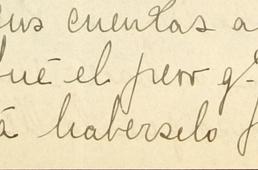 sus cuentas a
fué el peor q.
á haberselo